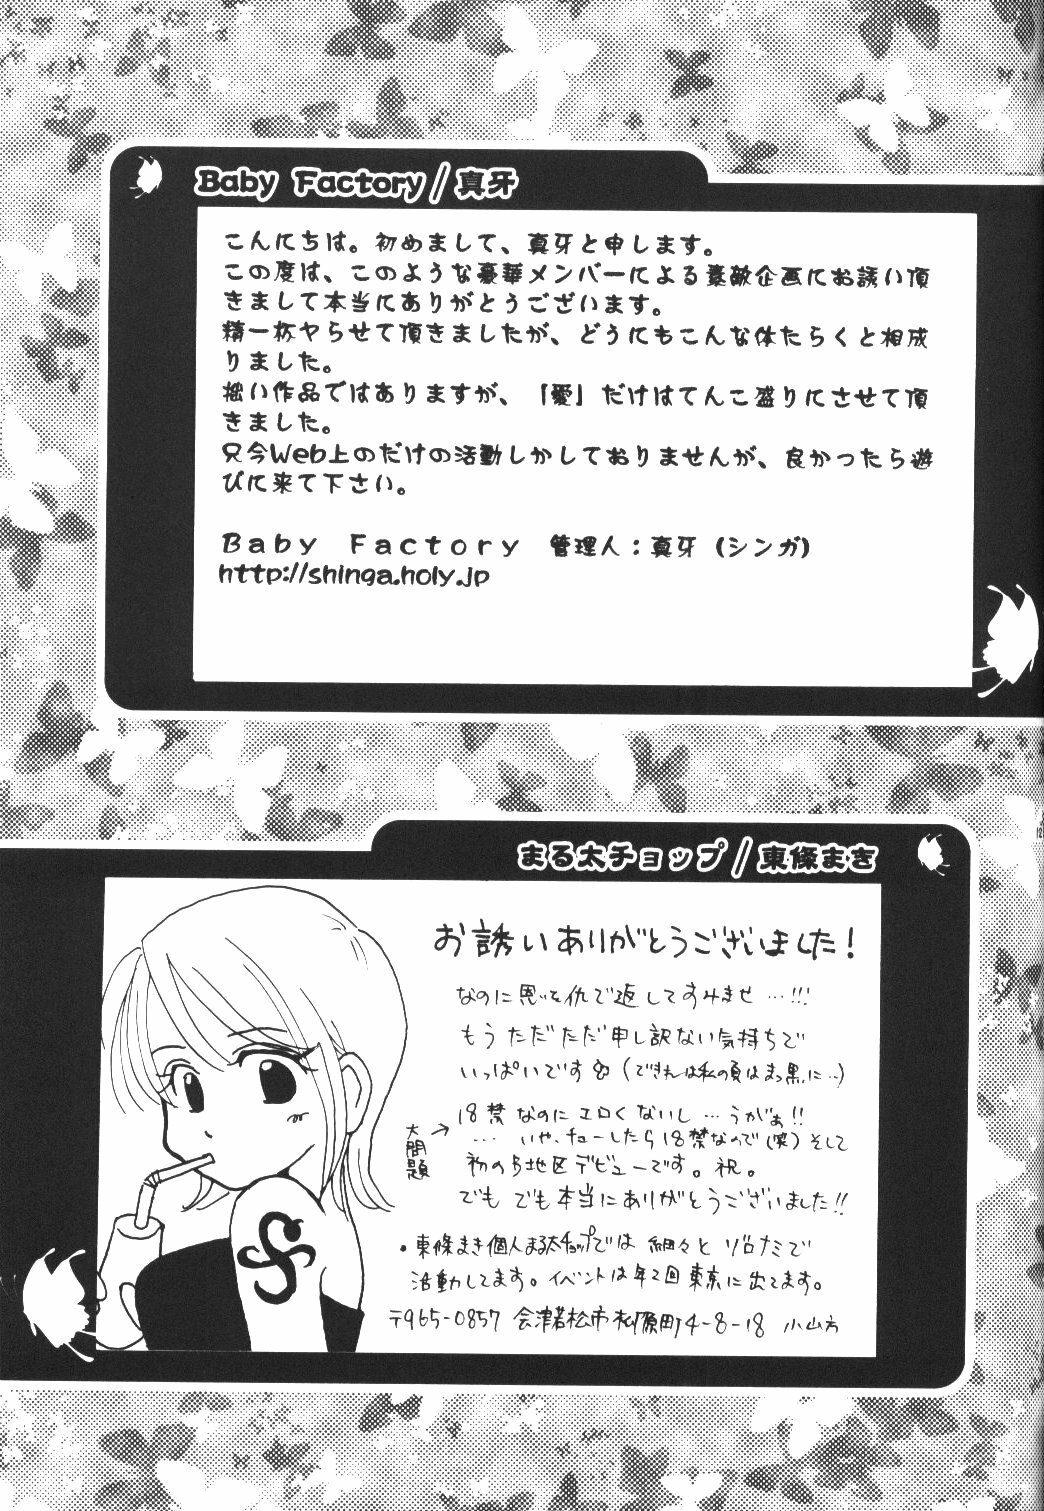 Baby Factory/真牙
こんにちは。初めまして、真牙と申します。
この度は、このような豪華メンバーによる素敵企画にお誘い頂
きまして本当にありがとうございます。
精一杯ヤらせて頂きましたが、どうにもこんな体たらくと相成
りました。
拙い作品ではありますが、「愛」だけはてんこ盛りにさせて頂
きました。
只今Web上のだけの活動しかしておりませんが、良かったら遊
びに来て下さい。
Baby Factory 管理人：真牙（シンガ）
http://shinga.holy.jp
まる太チョップ/東條まき
お誘いありがとうございました！
なのに恩を仇で返してすみませ…!!!
もう ただただ申し訳ない気持ちで
いっぱいです（できれば私の頁はまっ黒に…）
大問題→
18禁なのにエロくないし…うがぁ!!
…いや、チューしたら18禁なので（笑）そして
初の5地区デビューです。祝。
でも でも本当にありがとうございました!!
・東條まき個人まる太チョップでは 細々と ゾロナミで
活動してます。イベントは年2回東京に出てます。
〒965-0857 会津若松市 町4-8-18 小山方